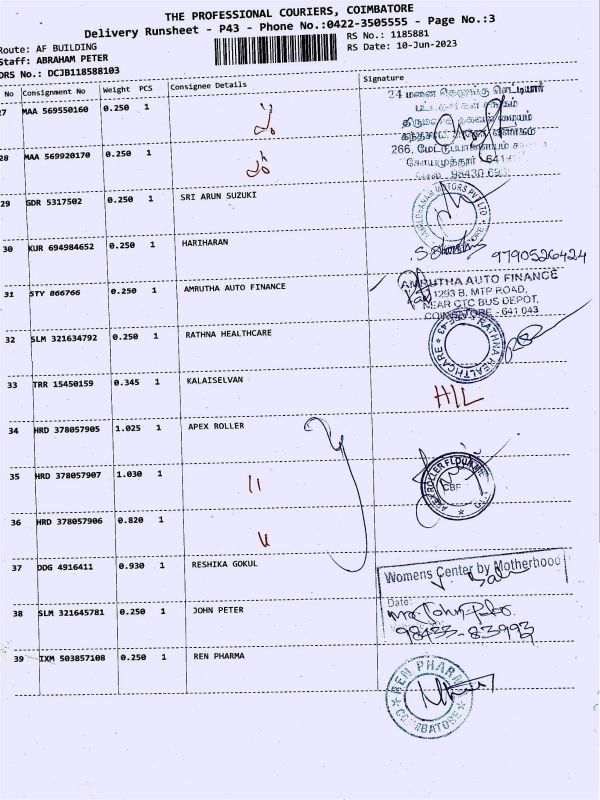 THE PROFESSIONAL COURIERS, COIMBATORE
Delivery Runsheet - P43 - Phone No.:0422-3505555 - Page No.:3
Route: AF BUILDING
Staff: ABRAHAM PETER
DRS No.: DCJB118588103
RS No.: 1185881
RS Date: 10-Jun-2023
No Consignment No Weight PCS Consignee Details Signature
27 MAA 569550160 0.250 1
28 MAA 569920170 0.250 1
266, மேட்டுப்பாளையம்
கோயமுத்தூர் - 641
29 GDR 5317502 0.250 1 SRI ARUN SUZUKI
30 KUR 694984652 0.250 1 HARIHARAN
9790526424
31 STY 866766 0.250 1 AMRUTHA AUTO FINANCE
AMRUTHA AUTO FINANCE
1293 B, MTP ROAD,
NEAR CTC BUS DEPOT,
COIMBATORE - 641 043
32 SLM 321634792 0.250 1 RATHNA HEALTHCARE
RATHNA HEALTHCARE
33 TRR 15450159 0.345 1 KALAISELVAN
H/L
34 HRD 378057905 1.025 1 APEX ROLLER
35 HRD 378057907 1.030 1 11
CBE
36 HRD 378057906 0.820 1
37 DDG 4916411 0.930 1 RESHIKA GOKUL
Womens Center by Motherhood
38 SLM 321645781 0.250 1 JOHN PETER
Date:
98433-83993
39 IXM 503857108 0.250 1 REN PHARMA
REN PHARMA
COIMBATORE